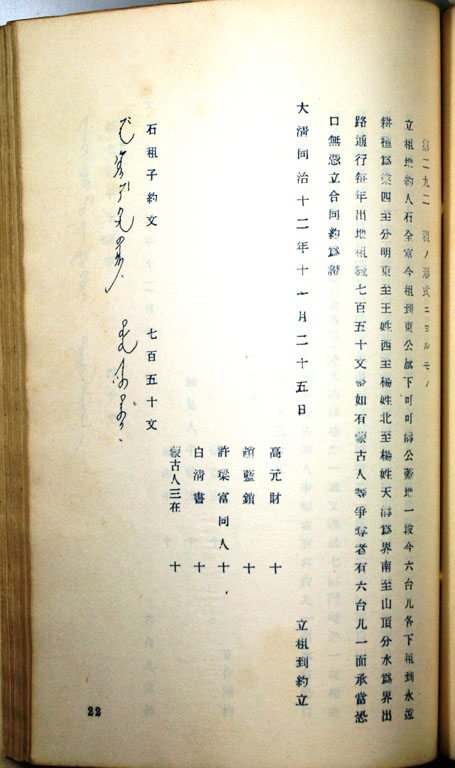 二九二　租ノ形式ニヨルモノ
立租地約人石全富今租到東公旗下可可 公 地一段今六台儿名下租到永遠
耕種為業四至分明東至王姓西至楊姓北至楊姓天溝為界南至山頂分水為界出
路通行每年出地租錢七百五十文 如有蒙古人等爭奪者有六台儿一面承當恐
口無憑立合同約為證
大清同治十二年十一月二十五日　立租到約立
高元財　十
趙藍鎖　十
許梁富同人　十
白清書　十
蒙古人三在　十
石租子約文　七百五十文
22